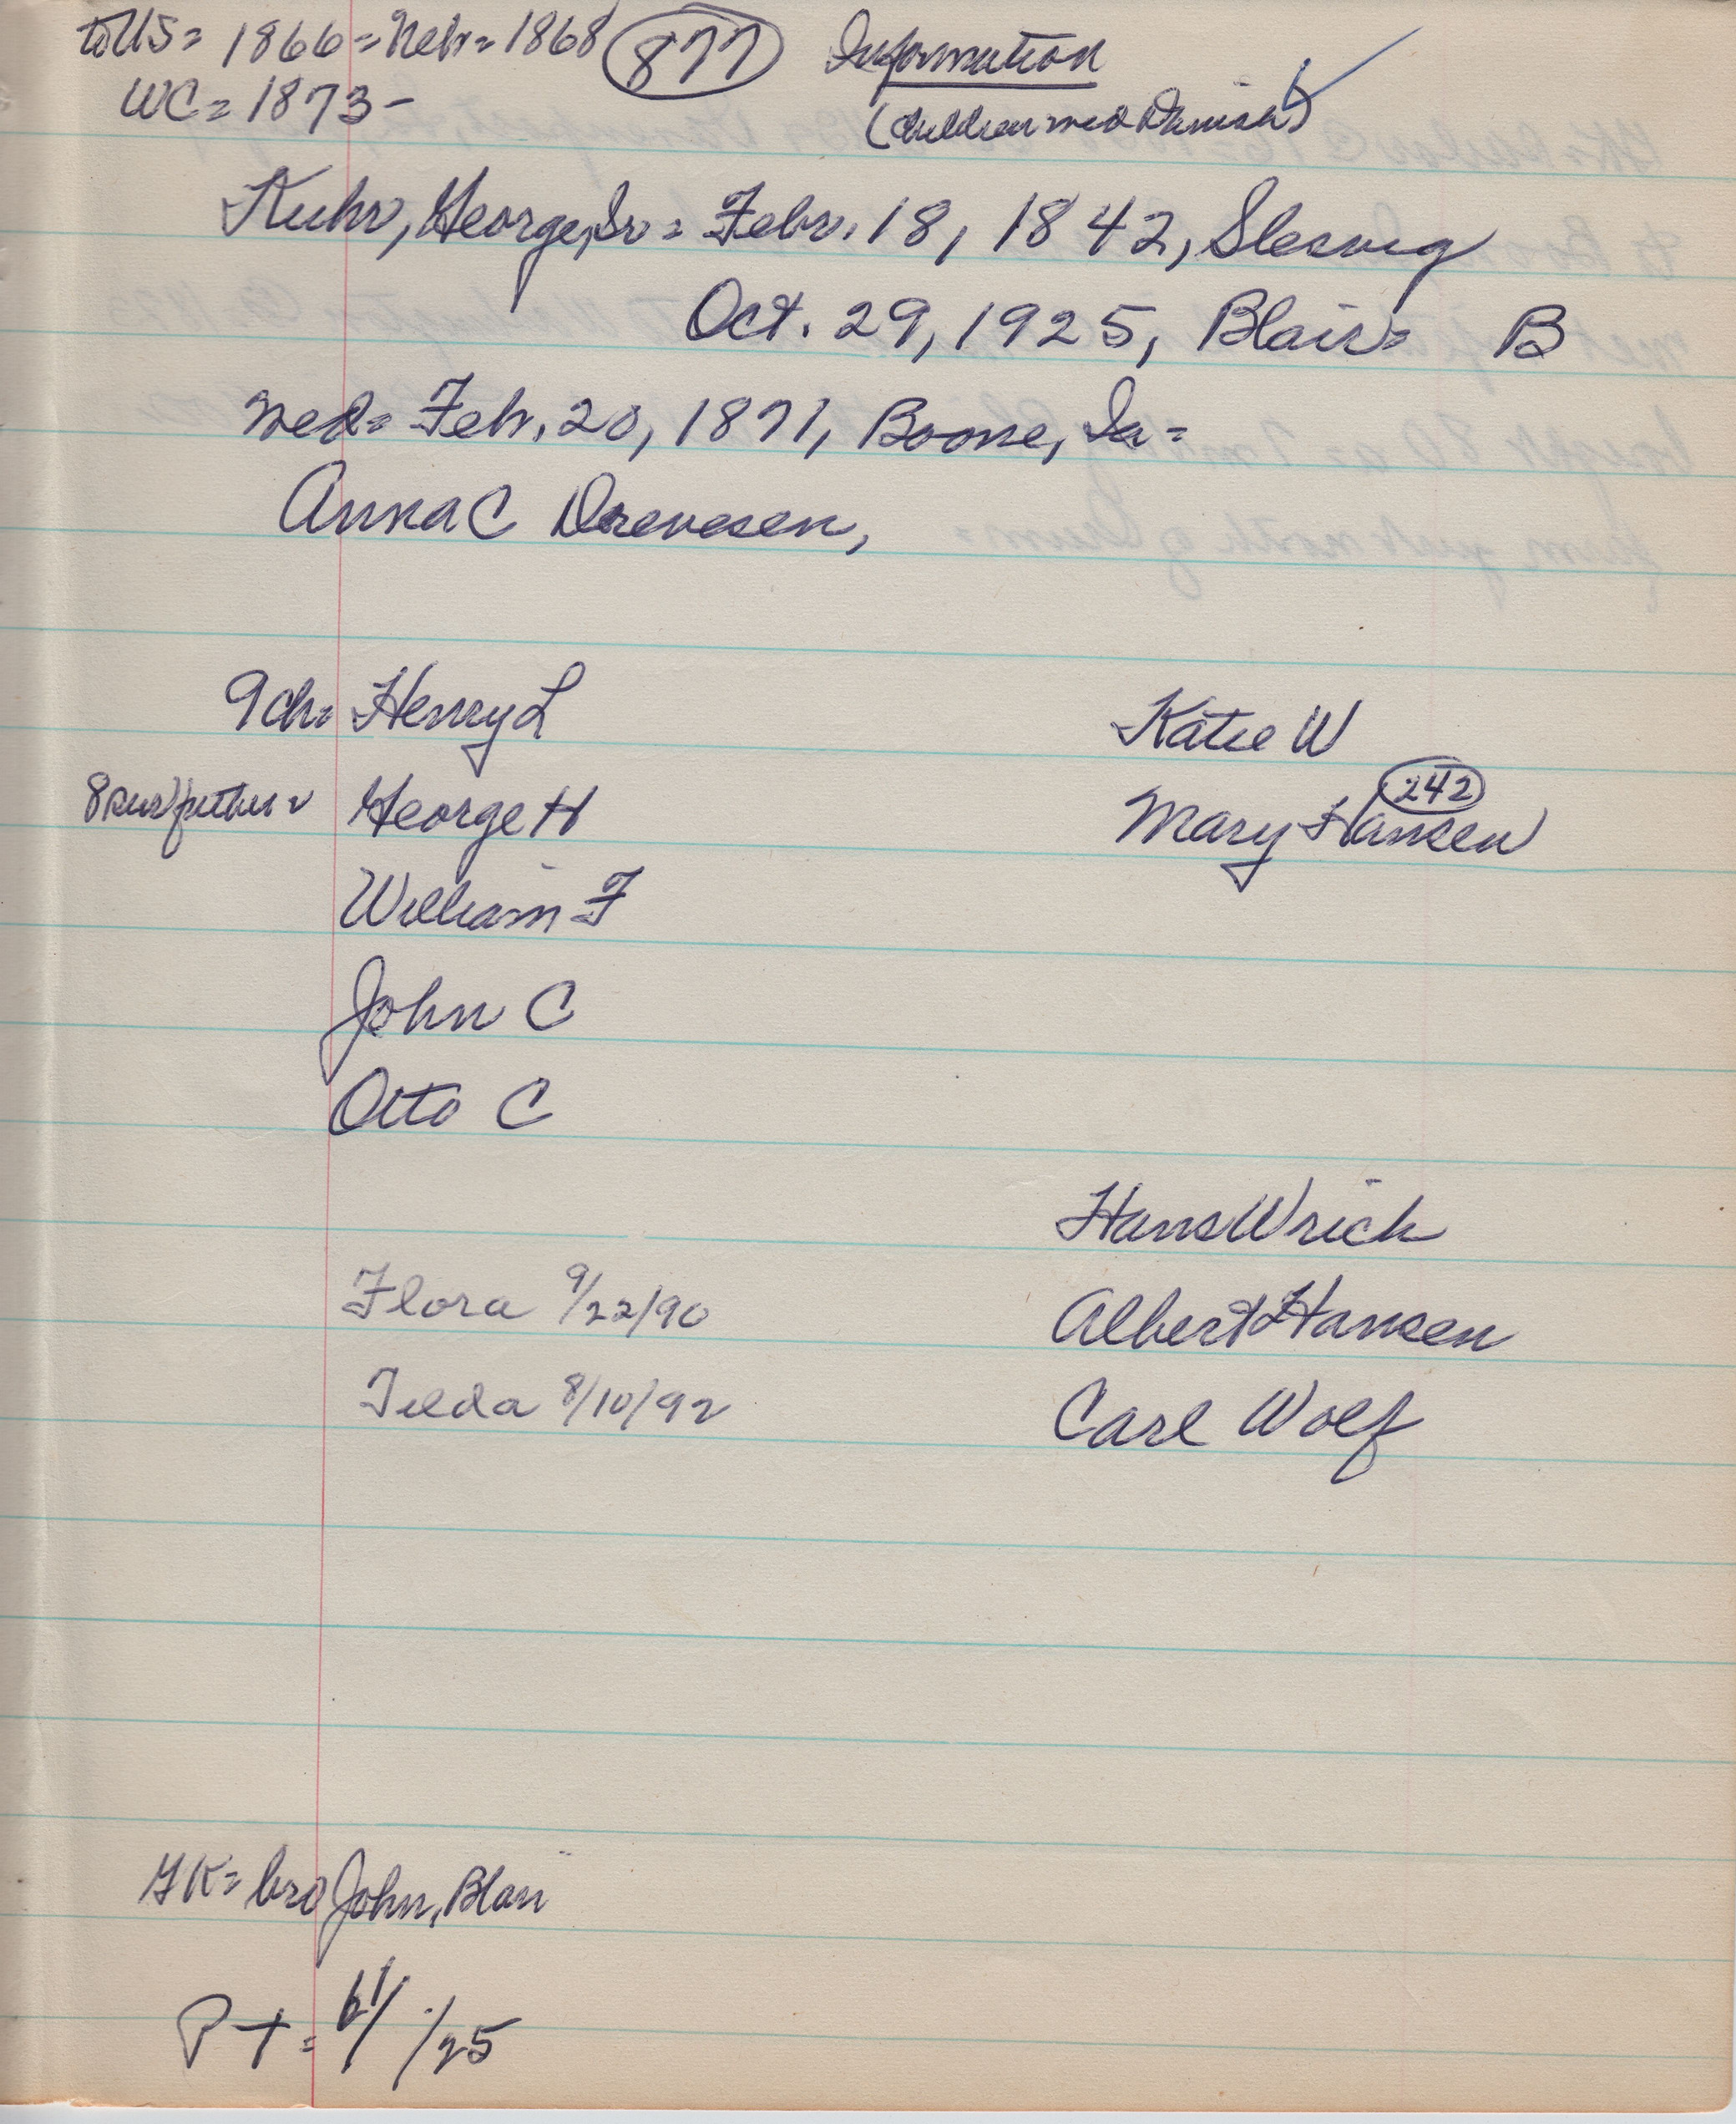 to US = 1866 = Nebr = 1868 877 Information
WC = 1873 - (children med Danish)
Kuhr, George, Sr = Febr. 18, 1842, Slesvig
Oct. 29, 1925, Blair = B
med = Febr. 20, 1871, Boone, Ia =
Anna C Drevesen,
9 ch = Henry L Katie W
8 surv father = George H Mary Hansen 242
William F
John C
Otto C
Hans Wrich
Flora 9/22/90 Albert Hansen
Tilda 8/10/92 Carl Wolf
GK = bro John, Blair
P T = 61/ /25